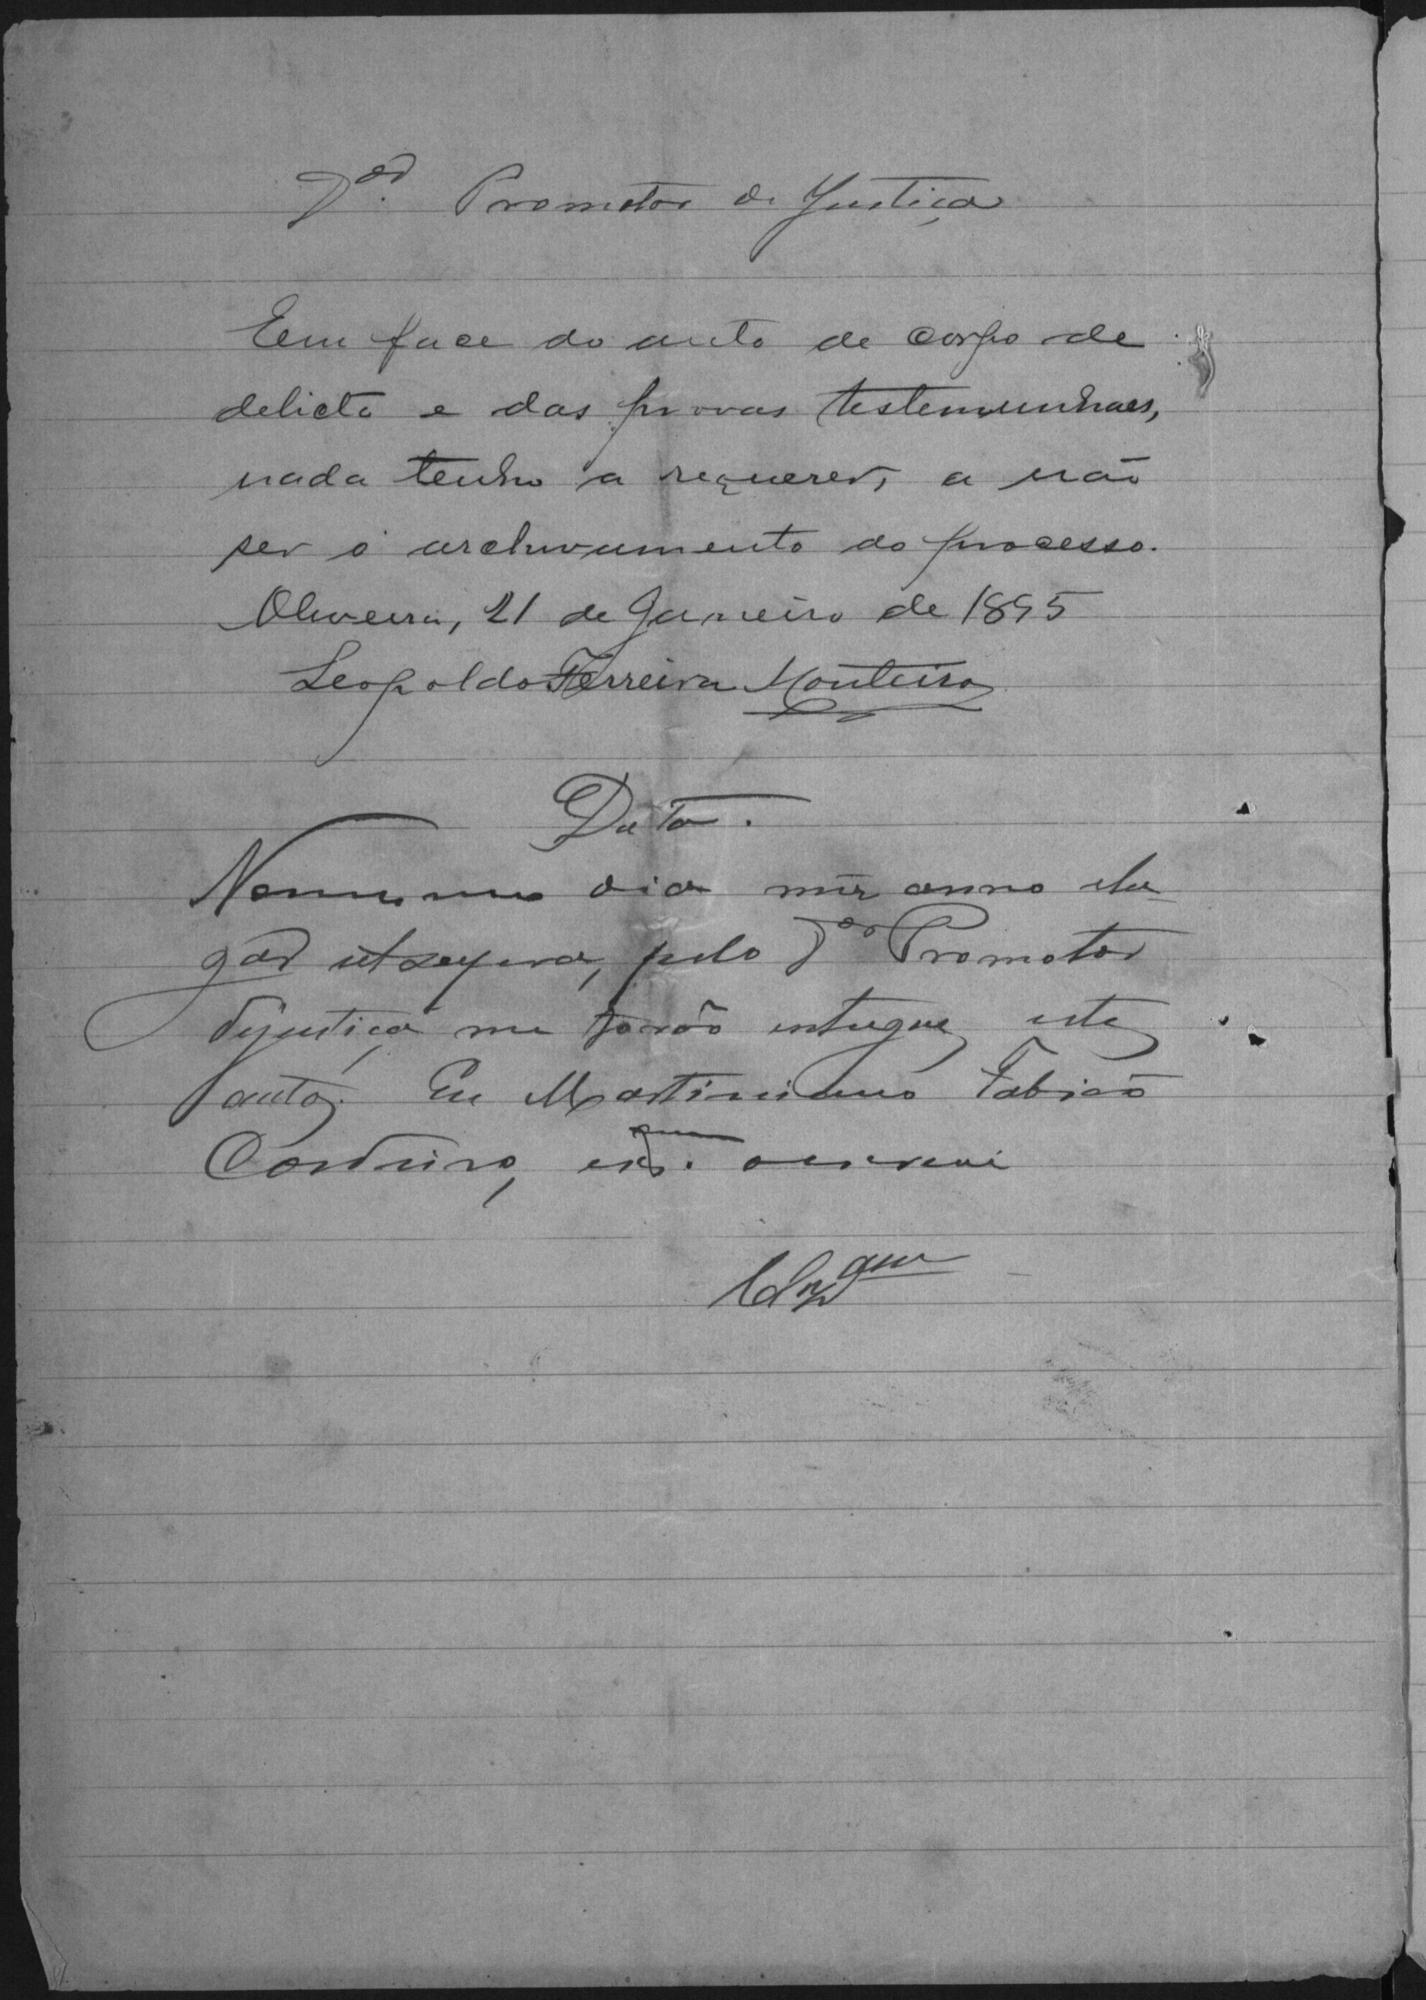 Dor. Promotor de Justiça
Em face do auto de corpo de
delicto e das provas testemunhaes,
nada tenho a requerer, a não
ser o archivamento do processo.
Oliveira, 21 de Janeiro de 1895
Leopoldo Ferreira Monteiro
Data.
No mesmo dia mez anno elu-
gar retro, pelo Dor Promotor
dejustiça me forão entregues estes
autos. Eu Martiniano Fabião
Cordeiro, oescrevi